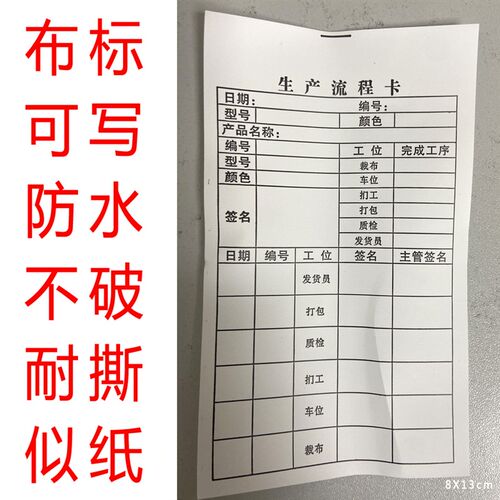 布标
可写
防水
不破
耐撕
似纸
生产流程卡
日期： 编号：
型号 颜色
产品名称：
编号 工位 完成工序
型号 裁布
颜色 车位
签名 扪工
打包
质检
发货员
日期 编号 工位 签名 主管签名
发货员
打包
质检
扪工
车位
裁布
8X13cm